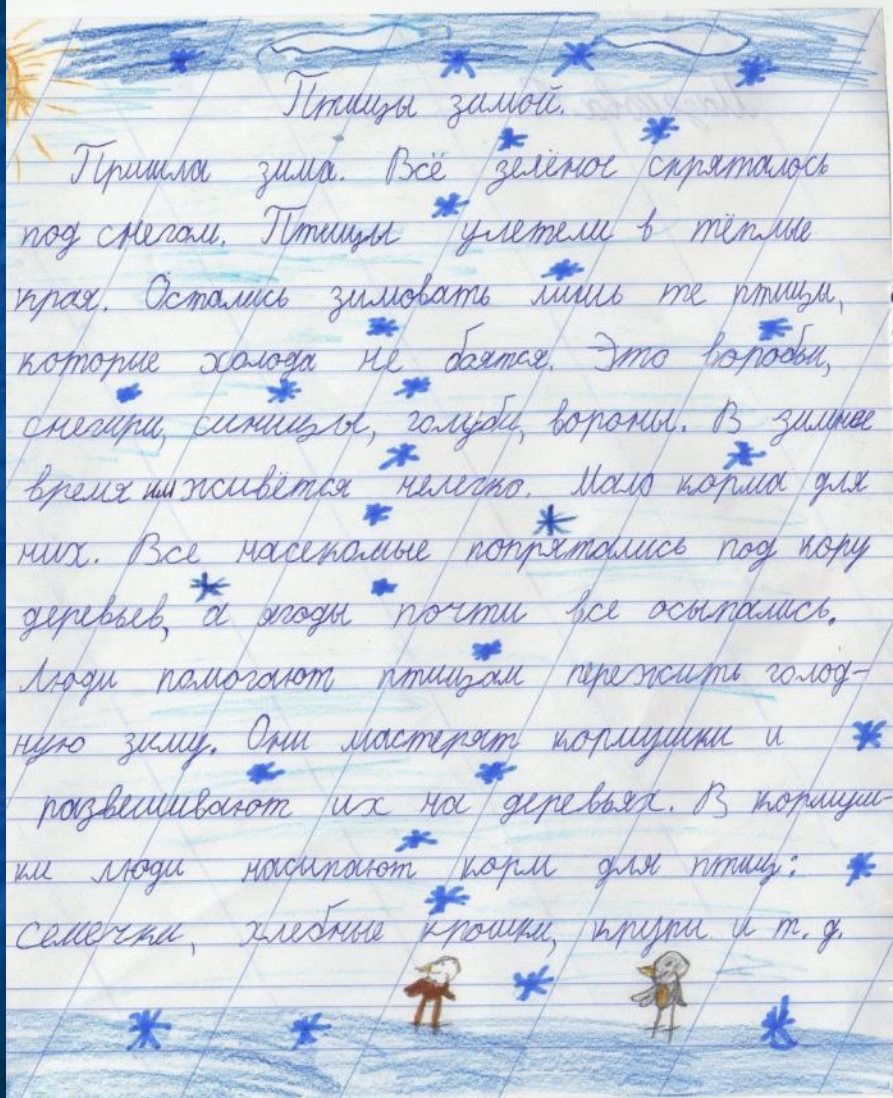 Птицы зимой.
Пришла зима. Всё зелёное спряталось
под снегом. Птицы улетели в тёплые
края. Остались зимовать лишь те птицы,
которые холода не боятся. Это воробьи,
снегири, синицы, голуби, вороны. В зимнее
время им живётся нелегко. Мало корма для
них. Все насекомые попрятались под кору
деревьев, а ягоды почти все осыпались.
Люди помогают птицам пережить голод-
ную зиму. Они мастерят кормушки и
развешивают их на деревьях. В кормуш-
ки люди насыпают корм для птиц:
семечки, хлебные крошки, крупы и т. д.